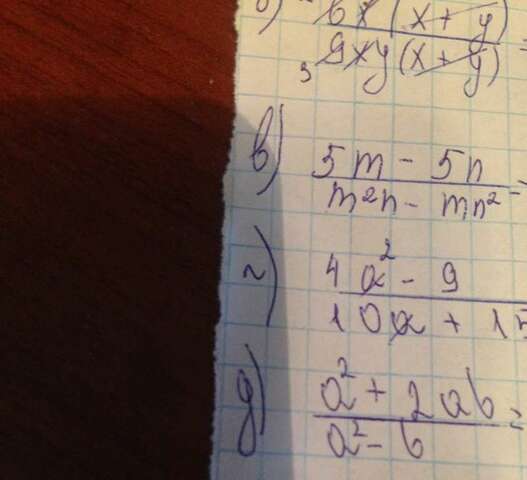 б) 6x(x+y)
3 9xy(x+y) =
в) 5m - 5n
m²n - mn² =
г) 4a² - 9
10a + 15
д) a² + 2ab
a² - b =